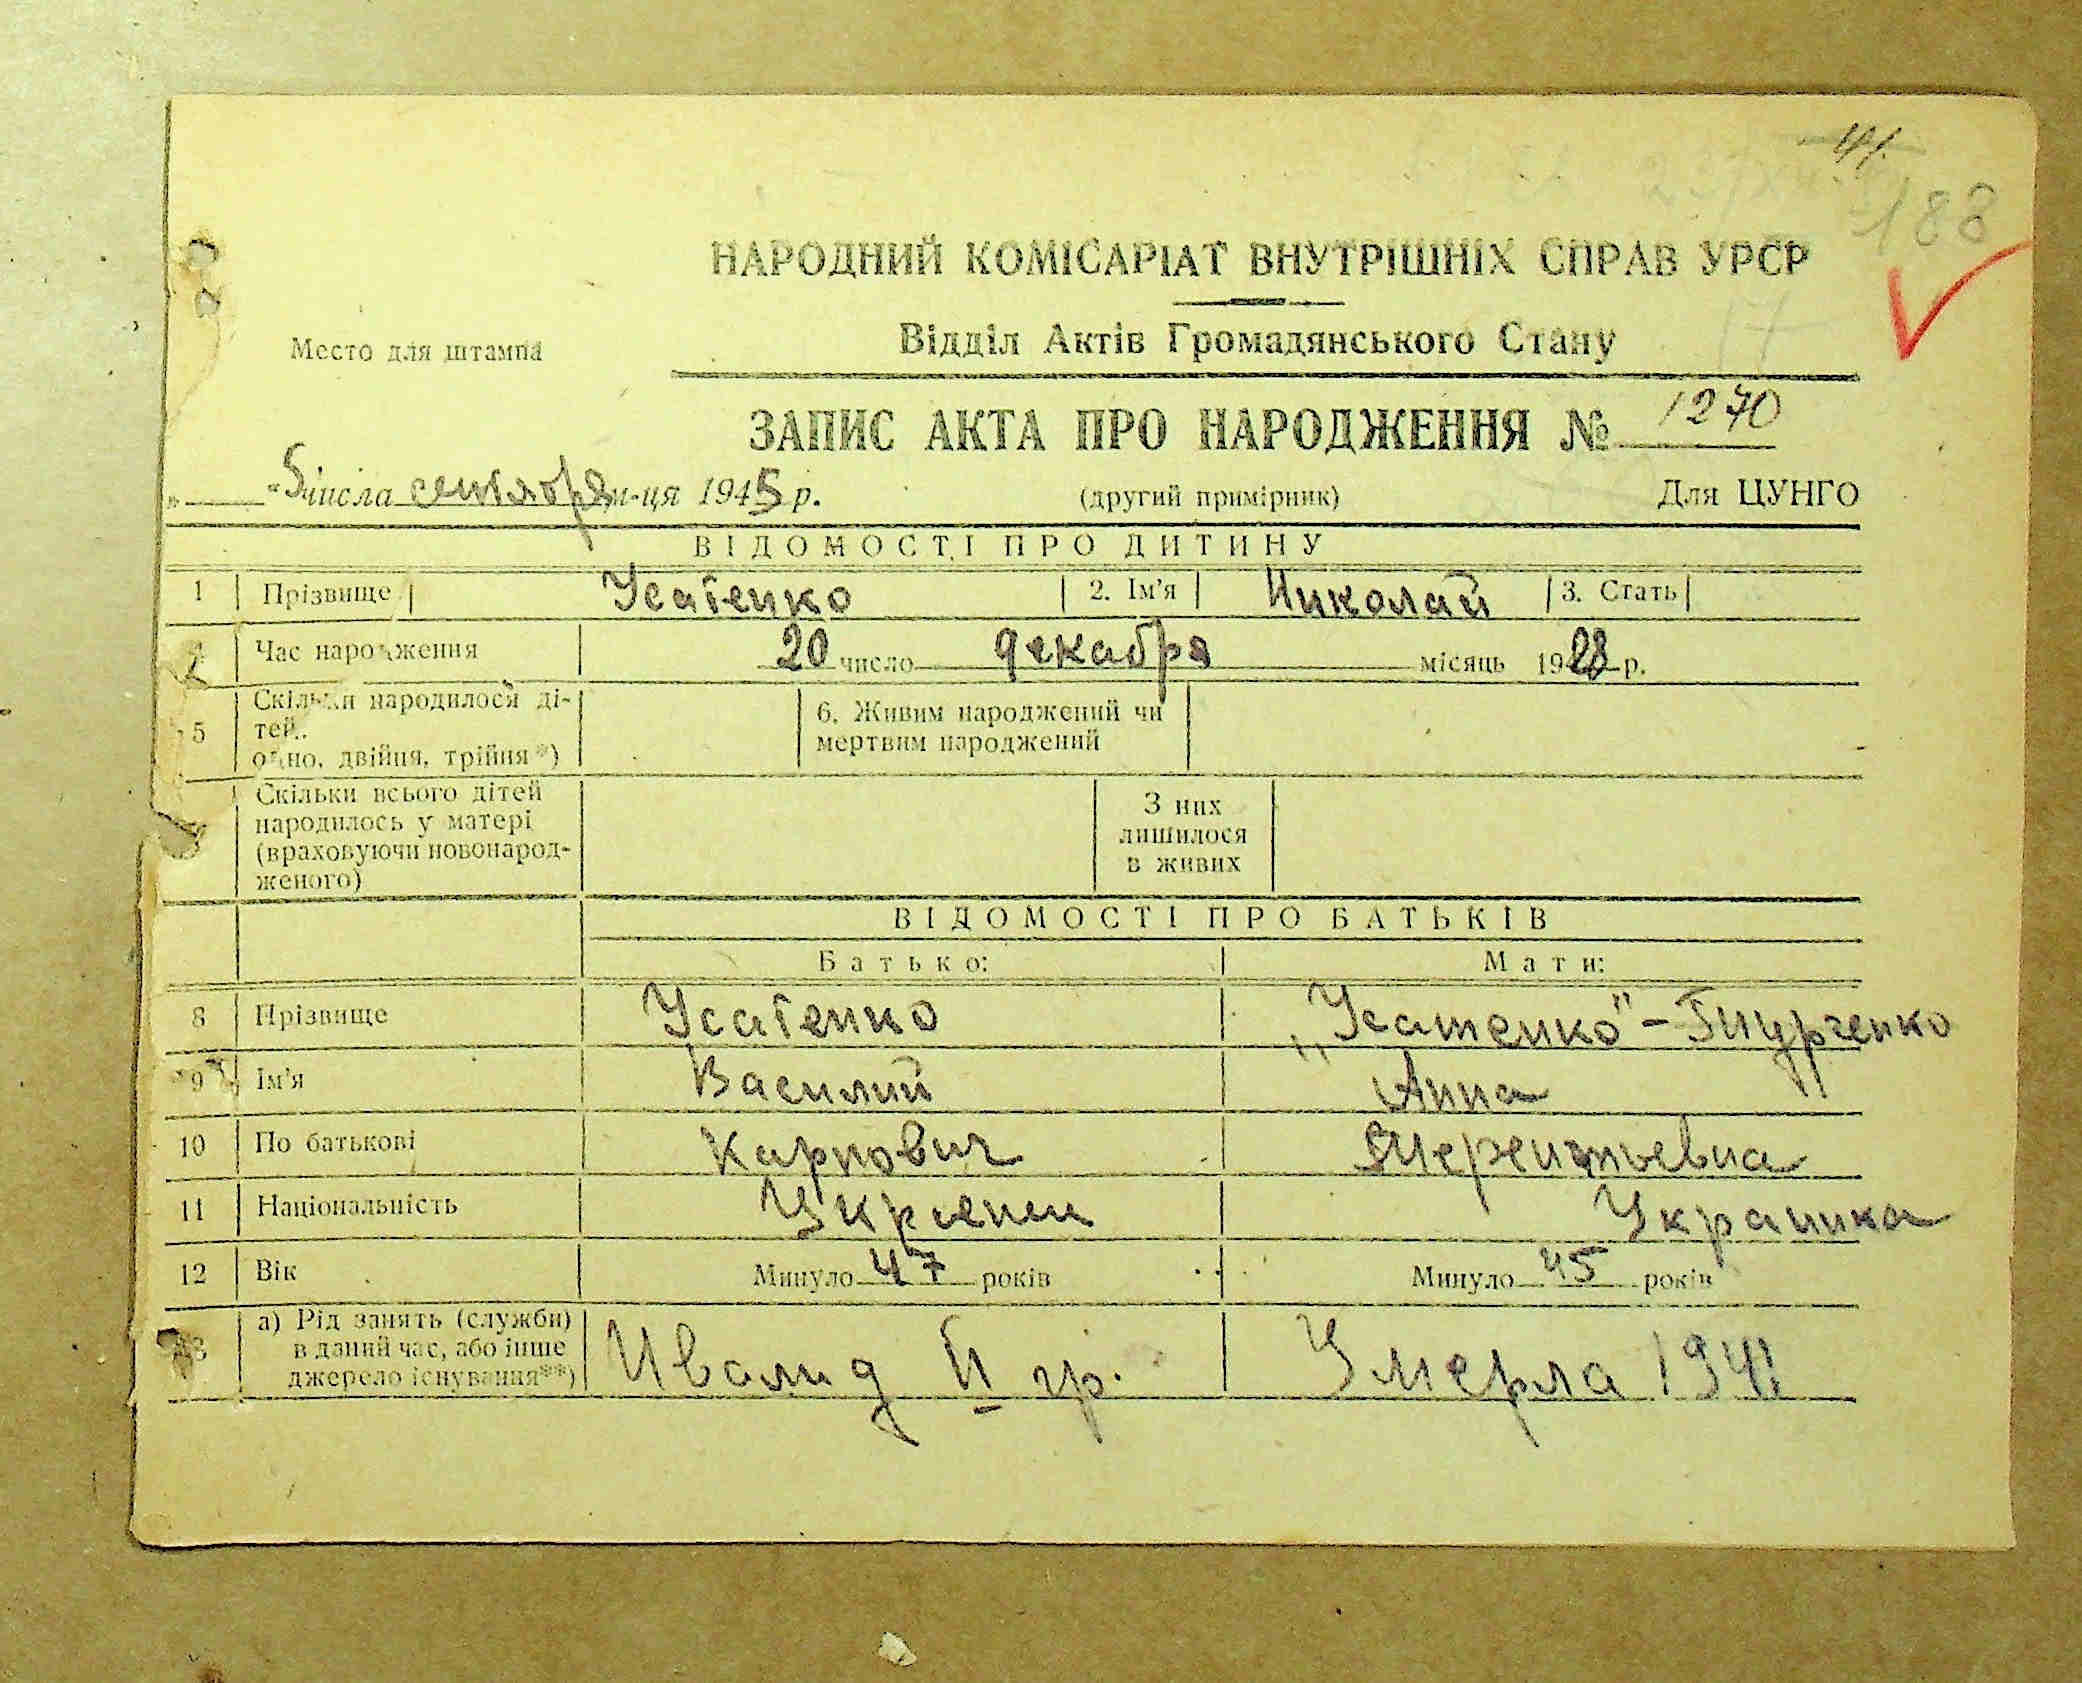 191.
188
НАРОДНИЙ КОМІСАРІАТ ВНУТРІШНІХ СПРАВ УРСР
Место для штампа
Відділ Актів Громадянського Стану
17
ЗАПИС АКТА ПРО НАРОДЖЕННЯ № 1270
„ “ 5 числа сентября м-ця 1945 р. (другий примірник) Для ЦУНГО
ВІДОМОСТІ ПРО ДИТИНУ
1 Прізвище Усатенко 2. Ім'я Николай 3. Стать
Час народження 20 число декабря місяць 1928 р.
5 Скільки народилося ді-
тей..
одно, двійня, трійня*)
6. Живим народжений чи
мертвим народжений
Скільки всього дітей
народилось у матері
(враховуючи новонарод-
женого)
З них
лишилося
в живих
ВІДОМОСТІ ПРО БАТЬКІВ
Батько: Мати:
8 Прізвище Усатенко „Усатенко"-Тмурченко
9 Ім'я Василий Анна
10 По батькові Карпович Терентьевна
11 Національність Украенец Украинка
12 Вік Минуло 47 років Минуло 45 років
13 а) Рід занять (служби)
в даний час, або інше
джерело існування**)
Ивалид II гр. Умерла 1941